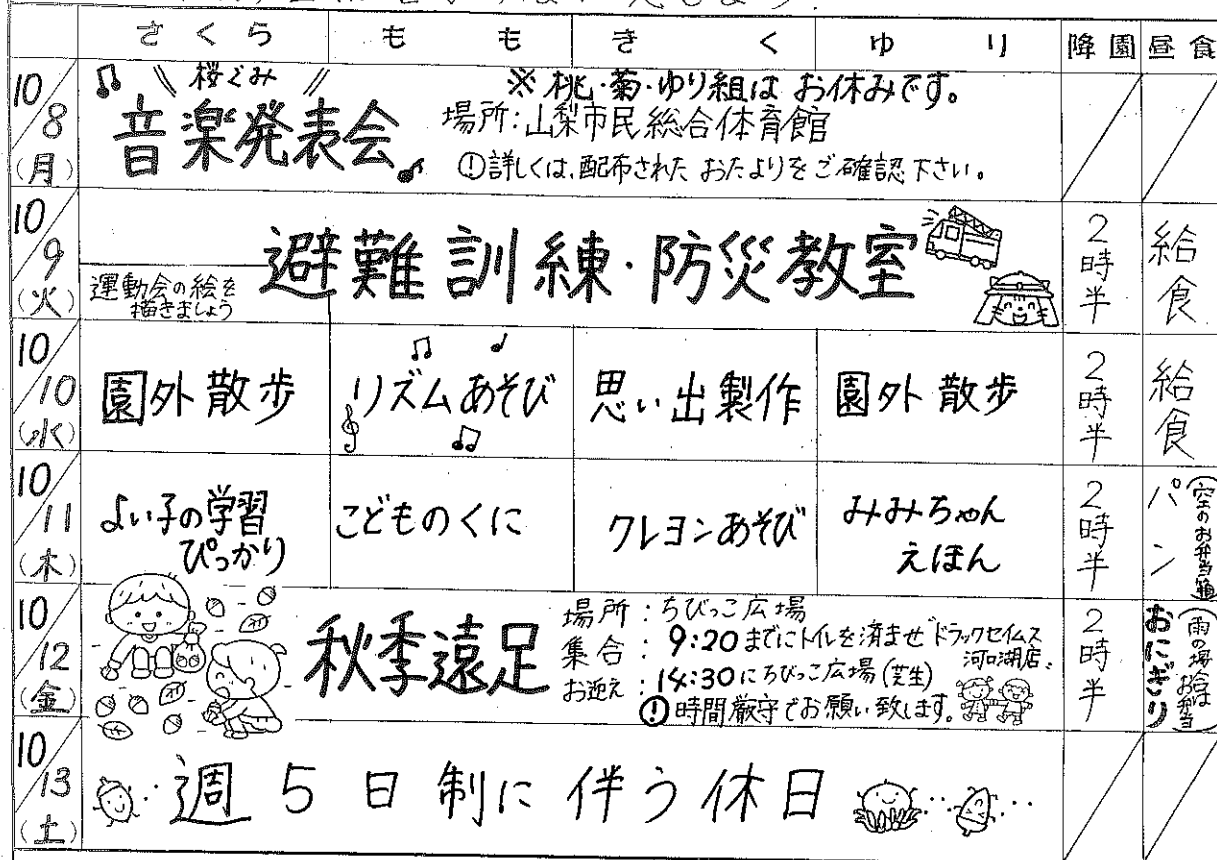 さくら もも きく ゆり 降園 昼食
10/8(月)
桜ぐみ
音楽発表会
※桃・菊・ゆり組は お休みです。
場所:山梨市民総合体育館
!詳しくは、配布された おたよりをご確認下さい。
10/9(火)
運動会の絵を
描きましょう
避難訓練・防災教室
2時半
給食
10/10(水)
園外散歩
リズムあそび
思い出製作
園外散歩
2時半
給食
10/11(木)
よい子の学習
ぴっかり
こどものくに
クレヨンあそび
みみちゃん
えほん
2時半
パン
(空のお弁当箱)
10/12(金)
秋季遠足
場所:ちびっこ広場
集合:9:20までにトイレを済ませドラックセイムス
河口湖店。
お迎え:14:30にちびっこ広場(芝生)
!時間厳守でお願い致します。
2時半
おにぎり
(雨の場合は
お弁当)
10/13(土)
週5日制に伴う休日